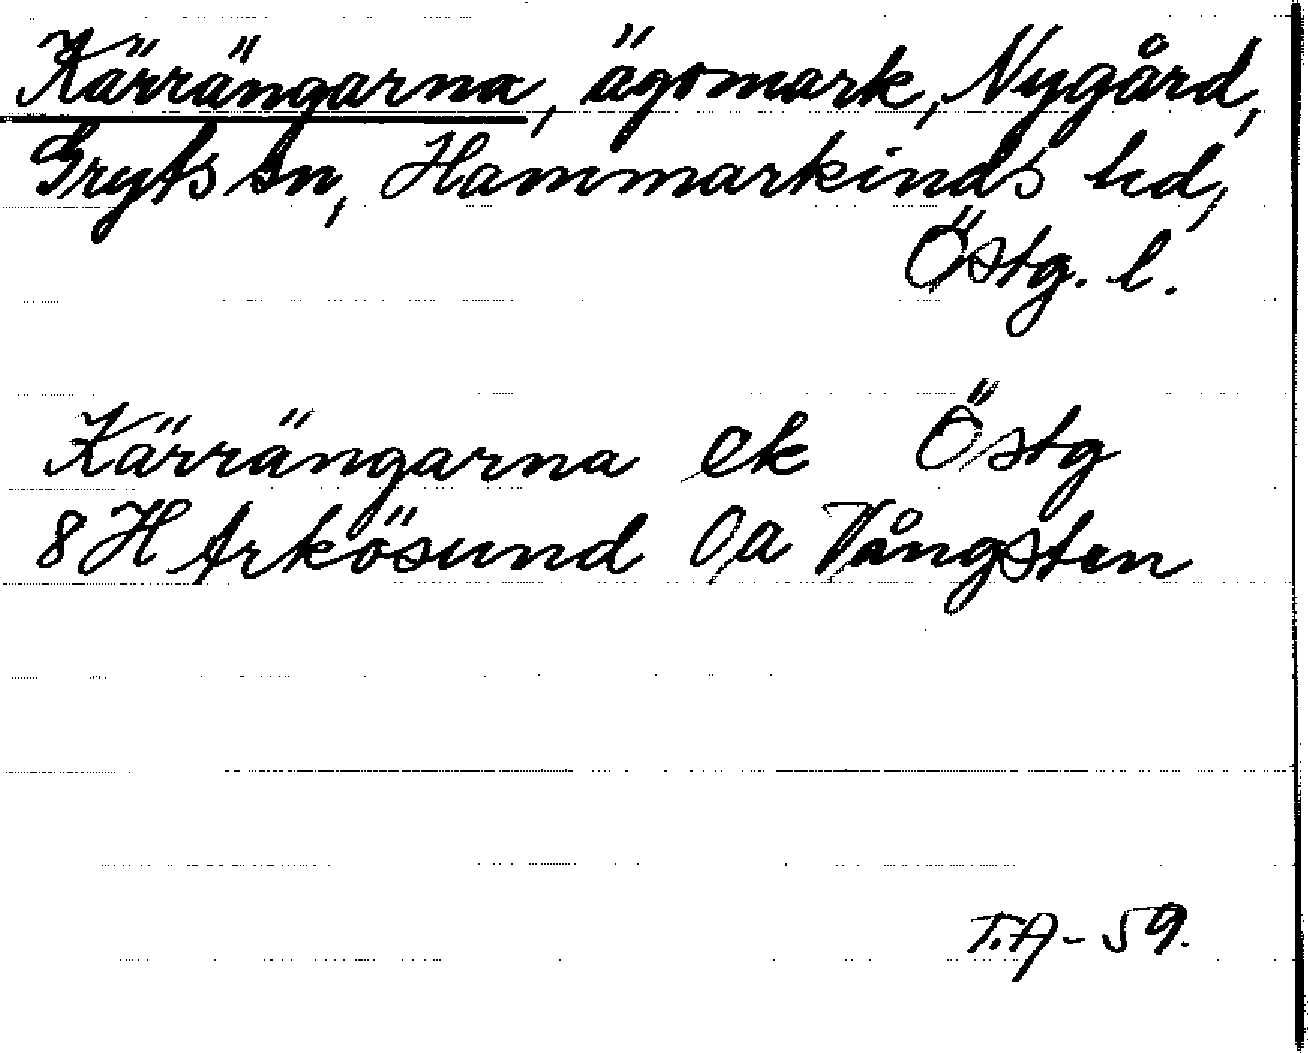 Kärrängarna, ägomark, Nygård,
Gryts sn, Hammarkinds hd,
Östg. l.
Kärrängarna ek Östg
8 H Arkösund Oa Vångsten
T.A - 59.